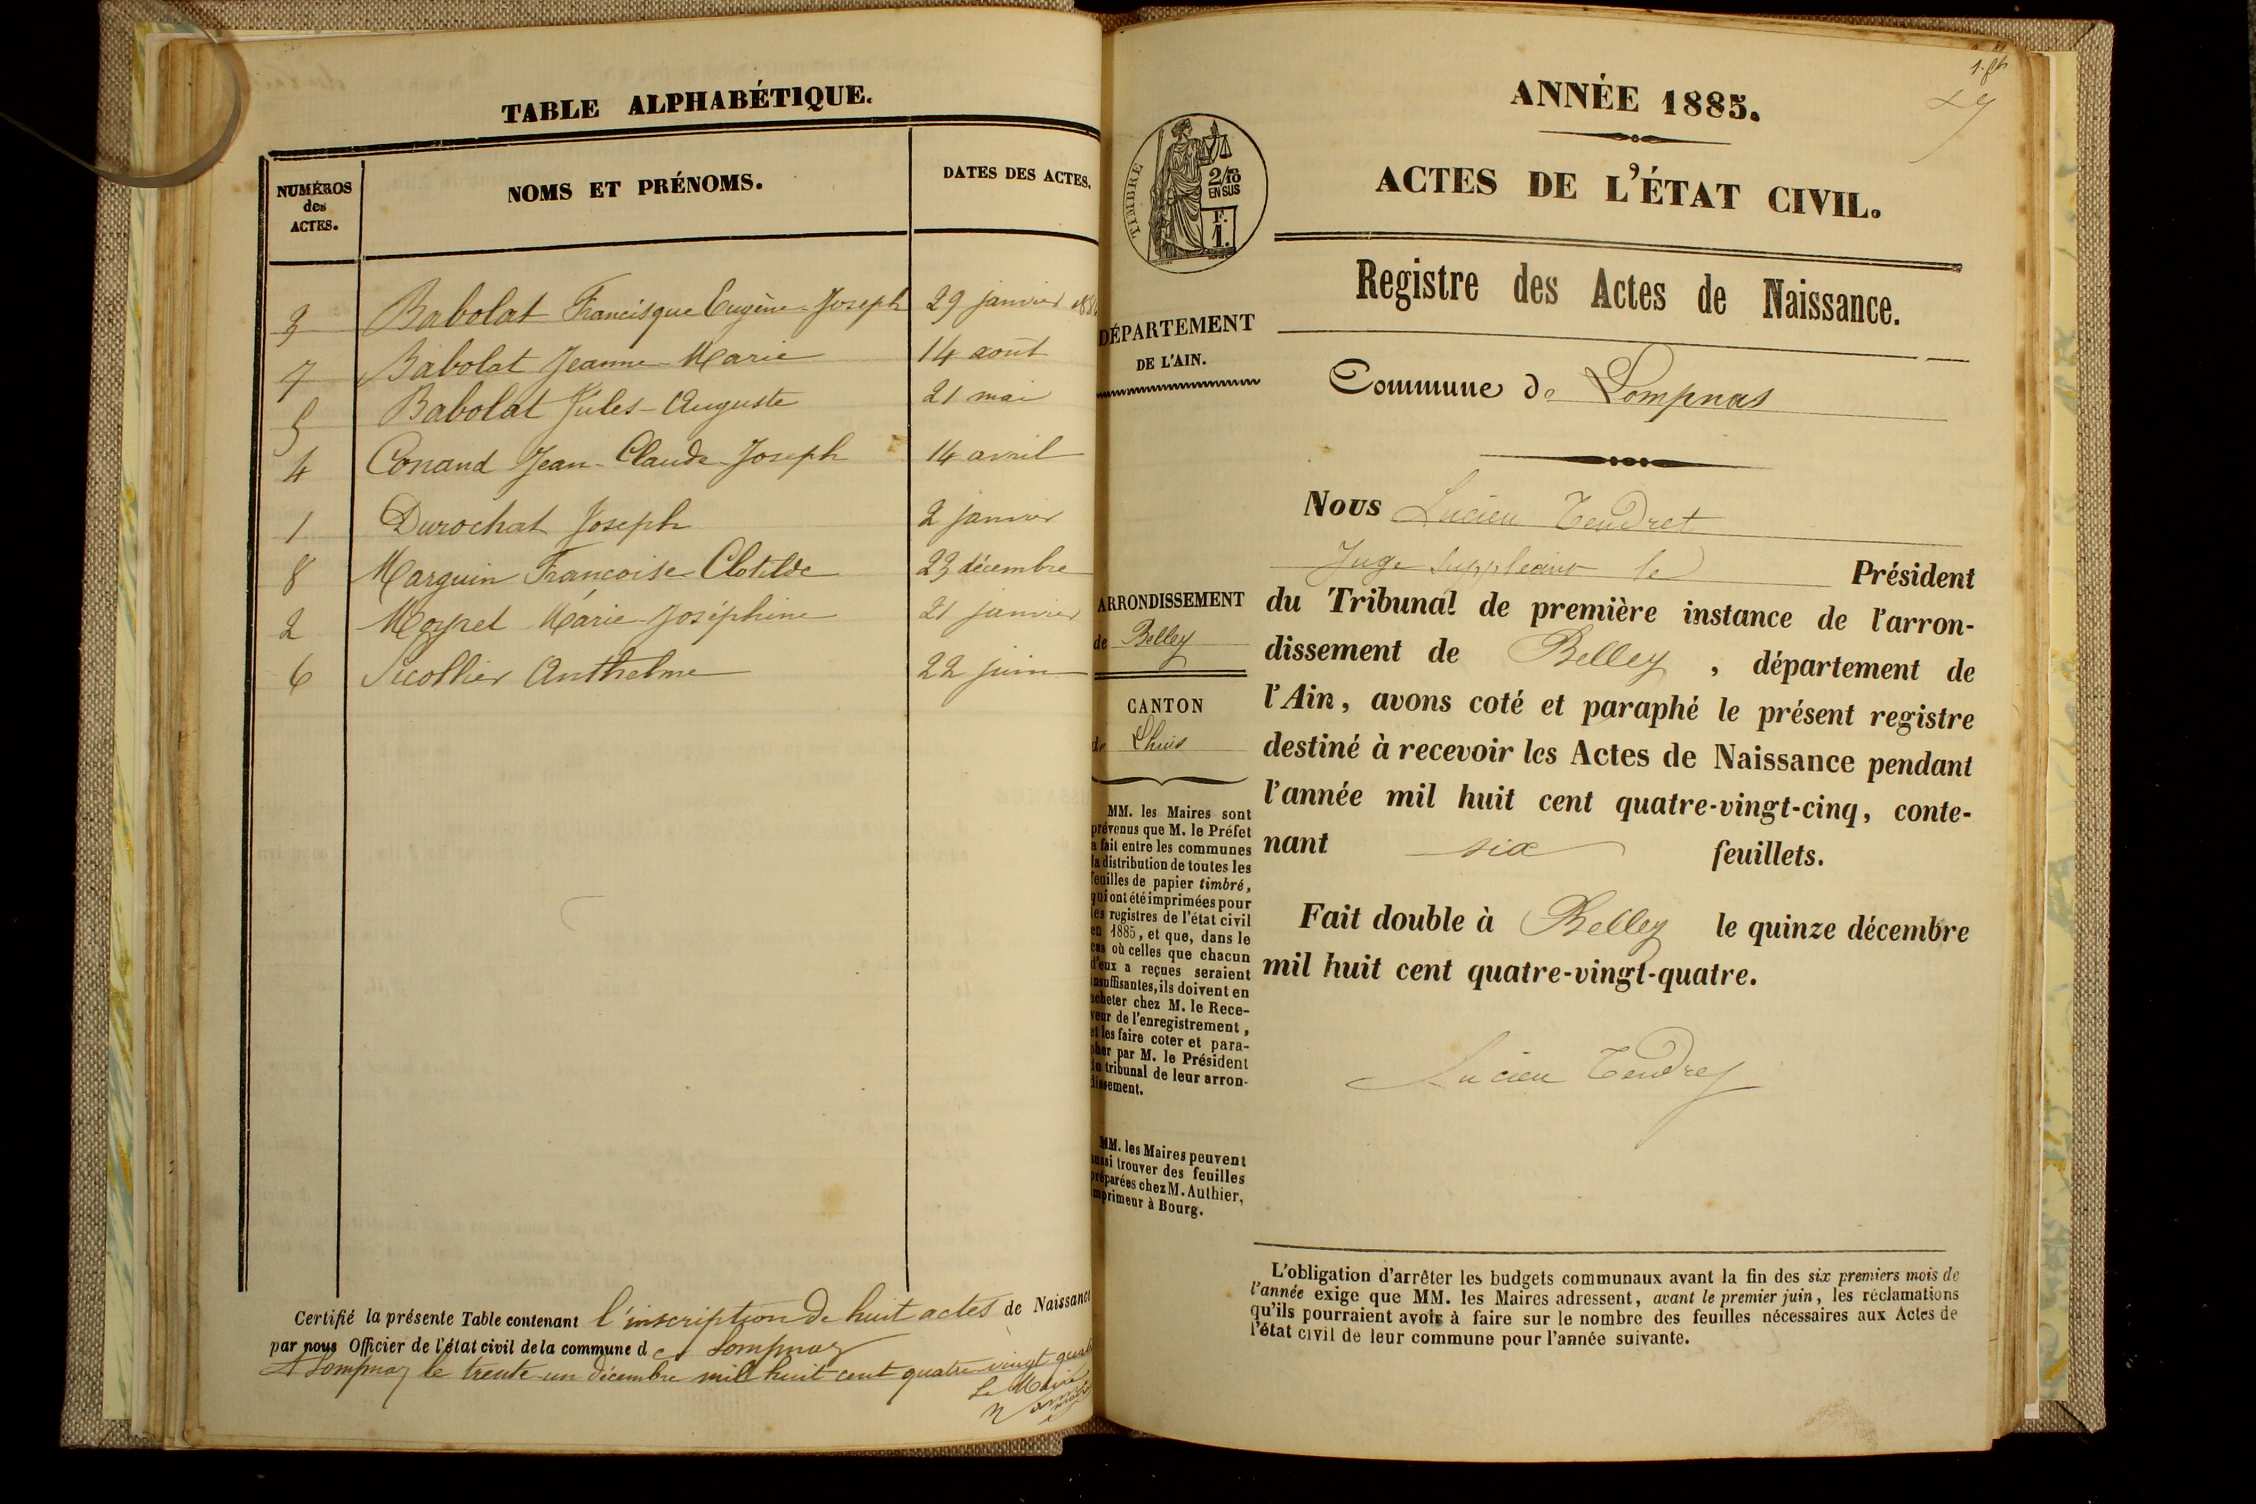 TABLE ALPHABÉTIQUE.
NUMÉROS
des
ACTES.
NOMS ET PRÉNOMS.
DATES DES ACTES.
3 Babolat Francisque Eugène Joseph 29 janvier
7 Babolat Jeanne-Marie 14 août
5 Babolat Jules-Auguste 21 mai
4 Conand Jean-Claude-Joseph 14 avril
1 Durochat Joseph 2 janvier
8 Marguin Françoise-Clotilde 23 décembre
2 Marie-Joséphine 21 janvier
6 Anthelme 22 juin
Certifié la présente Table contenant l'inscription de huit actes de Naissance
par nous Officier de l'état civil de la commune de Lompnaz
A Lompnaz le trente-un décembre mil huit cent quatre-vingt
Le Maire
ANNÉE 1885.
ACTES DE L'ÉTAT CIVIL.
TIMBRE
2/10
EN SUS
F.
1.
Registre des Actes de Naissance.
DÉPARTEMENT
DE L'AIN.
Commune de Lompnas
Nous Lucien Tendret
Juge suppléant le Président
du Tribunal de première instance de l'arron-
dissement de Belley , département de
l'Ain, avons coté et paraphé le présent registre
destiné à recevoir les Actes de Naissance pendant
l'année mil huit cent quatre-vingt-cinq, conte-
nant six feuillets.
Fait double à Belley le quinze décembre
mil huit cent quatre-vingt-quatre.
Lucien Tendret
ARRONDISSEMENT
de Belley
CANTON
de Lhuis
MM. les Maires sont
prévenus que M. le Préfet
a fait entre les communes
la distribution de toutes les
feuilles de papier timbré,
qui ont été imprimées pour
les registres de l'état civil
en 1885, et que, dans le
cas où celles que chacun
d'eux a reçues seraient
insuffisantes, ils doivent en
acheter chez M. le Rece-
veur de l'enregistrement,
et les faire coter et para-
pher par M. le Président
du tribunal de leur arron-
dissement.
MM. les Maires peuvent
aussi trouver des feuilles
préparées chez M. Authier,
imprimeur à Bourg.
L'obligation d'arrêter les budgets communaux avant la fin des six premiers mois de
l'année exige que MM. les Maires adressent, avant le premier juin, les réclamations
qu'ils pourraient avoir à faire sur le nombre des feuilles nécessaires aux Actes de
l'état civil de leur commune pour l'année suivante.